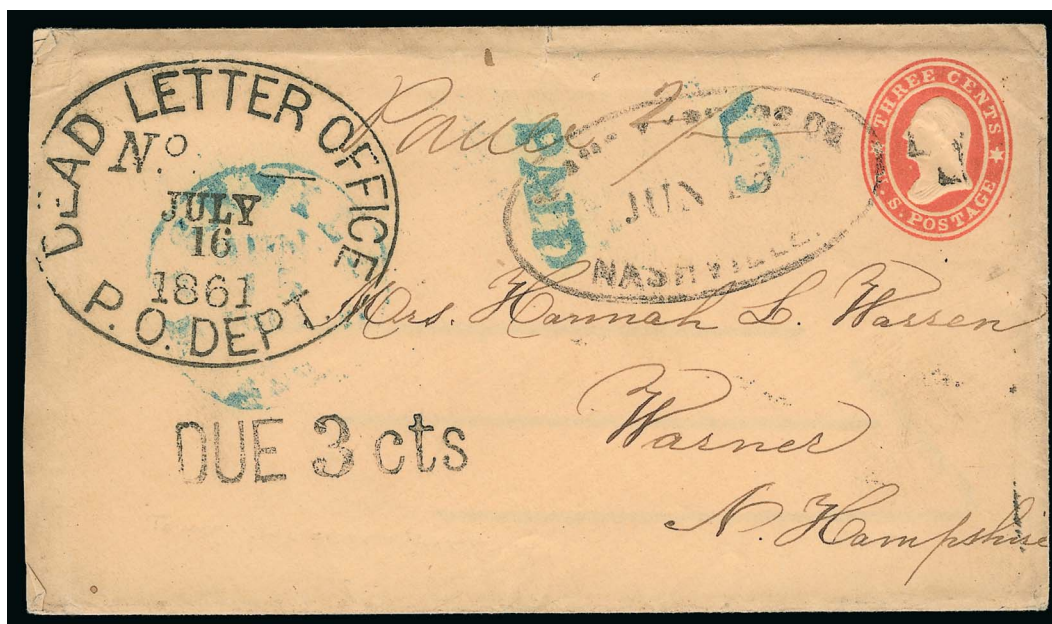 DEAD LETTER OFFICE
No.
JULY
16
1861
P. O. DEPT.
PAID
5
JUN
NASHVILLE.
THREE CENTS
U. S. POSTAGE
Mrs. Hannah L. Warren
Warner
N. Hampshire
DUE 3 cts